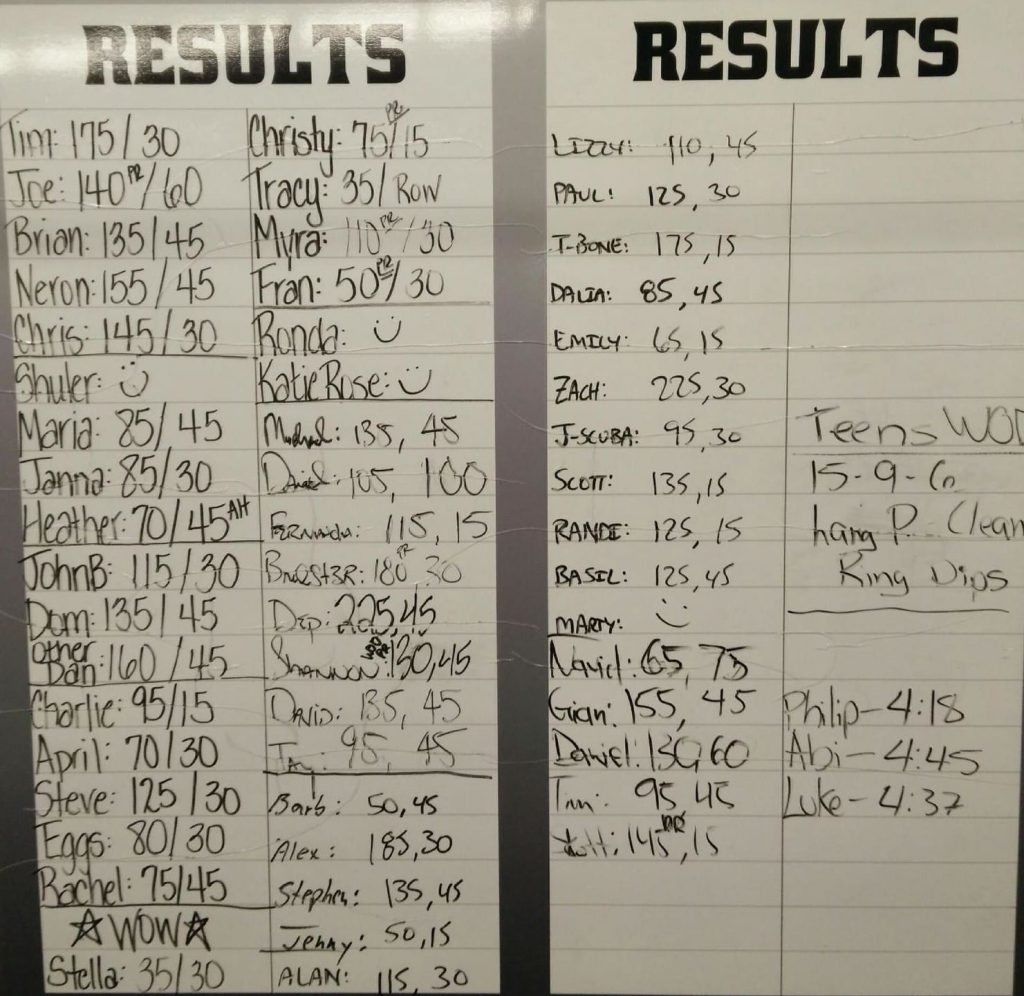 RESULTS
Tim: 175/30
Joe: 140 PR/60
Brian: 135/45
Neron: 155/45
Chris: 145/30
Shuler: :)
Maria: 85/45
Janna: 85/30
Heather: 70/45 AH
JohnB: 115/30
Dom: 135/45
Other Dan: 160/45
Charlie: 95/15
April: 70/30
Steve: 125/30
Eggs: 80/30
Rachel: 75/45
☆WOW☆
Stella: 35/30
Christy: 75 PR/15
Tracy: 35/Row
Myra: 110 PR/30
Fran: 50 PR/30
Ronda: :)
KatieRose: :)
Michael: 135, 45
David: 105, 100
FERNANDA: 115, 15
180 PR 30
Dep: 225, 45
SHANNON: 130, 45
DAVID: 135, 45
JAY: 95, 45
Barb: 50, 45
Alex: 185, 30
Stephen: 135, 45
Jenny: 50, 15
ALAN: 115, 30
RESULTS
LIZZY: 110, 45
PAUL: 125, 30
T-BONE: 175, 15
DALIA: 85, 45
EMILY: 65, 15
ZACH: 225, 30
J-SCUBA: 95, 30
SCOTT: 135, 15
RANDE: 125, 15
BASIL: 125, 45
MARTY: :)
65, 75
Gian: 155, 45
Daniel: 130, 60
Tim: 95, 45
145 PR, 15
Teens WOD
15-9-6
hang P. Clean
Ring Dips
Philip-4:18
Abi-4:45
Luke-4:37